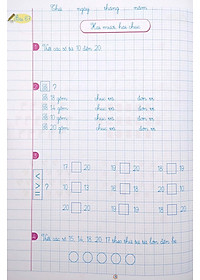 Thứ ngày tháng năm
Hai mươi, hai chục
1 Viết các số từ 10 đến 20.
2 Số ?
18 gồm chục và đơn vị
gồm chục và đơn vị
10 gồm chục và đơn vị
20 gồm chục và đơn vị
3
17 20 19 20 19
> < = ? 10 18 19
20 20 20 19 19 19
4 Viết các số 15, 14, 18, 20, 17 theo thứ tự từ lớn đến bé